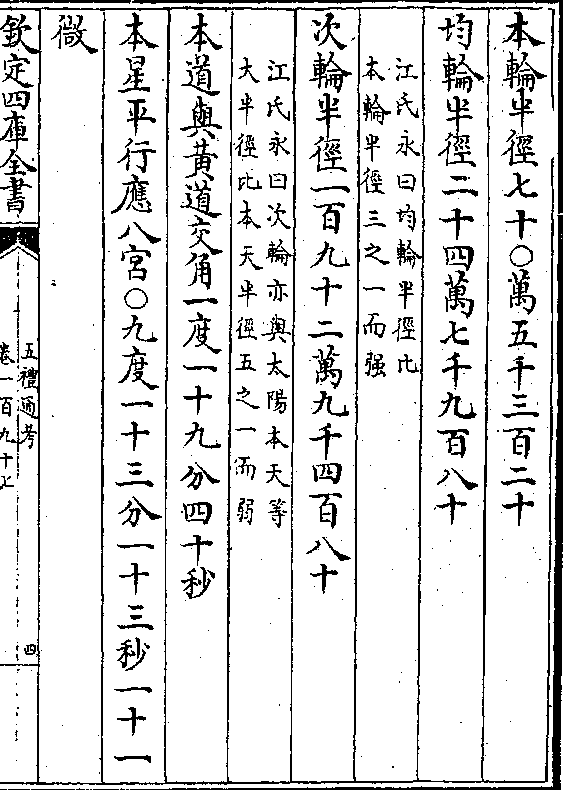 本輪半徑七十〇萬五千三百二十
均輪半徑二十四萬七千九百八十
江氏永曰均輪半徑比
本輪半徑三之一而强
次輪半徑一百九十二萬九千四百八十
江氏永曰次輪亦與太陽本天等
大半徑比本天半徑五之一而弱
本道與黃道交角一度一十九分四十秒
本星平行應八宮〇九度一十三分一十三秒一十一
微
欽定四庫全書
五禮通考
卷一百九十
四